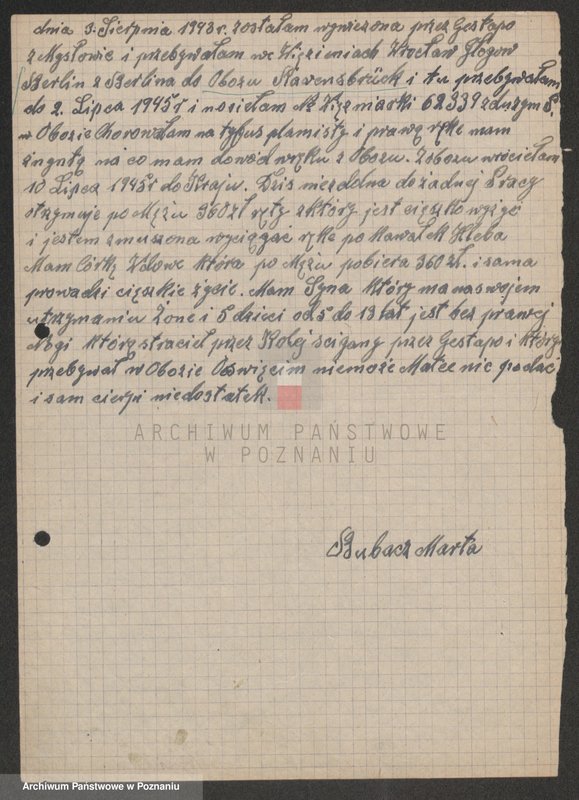 dnia 3. Sierpnia 1943 r. zostałam wywieziona przez Gestapo
z Mysłowic i przebywałam we Więzieniach Wrocław Głogów
Berlin z Berlina do Obozu Ravensbrück i tu przebywałam
do 2. Lipca 1945 r i nosiełam Nr. Więzniarki 62339 z dużym S.
w Obozie Chorowałam na tyfus plamisty i prawą rękę mam
na co mam dowód z Obozu. Z obozu wróciełam
10 Lipca 1945 r do Kraju. Dzis niezdolna do żadnej Pracy
otrzymuje po Mężu 360 zł ręty z który jest ciężko wyżyć
i jestem zmuszona wyciągać rękę po kawałek Hleba
Mam Córkę Wdowe która po Mężu pobiera 360 zł. i sama
prowadzi cięszkie życie. Mam Syna który ma na swojem
utrzymaniu Żone i 5 dzieci od 5 do 13 lat jest bez prawej
Nogi który straciel przez Kolej scigany przez Gestapo i który
przebywał w Obozie Oświęcim niemoże Matce nic podać
i sam cierpi niedostatek.
ARCHIWUM PAŃSTWOWE
W POZNANIU
Bubacz Marta
Archiwum Państwowe w Poznaniu